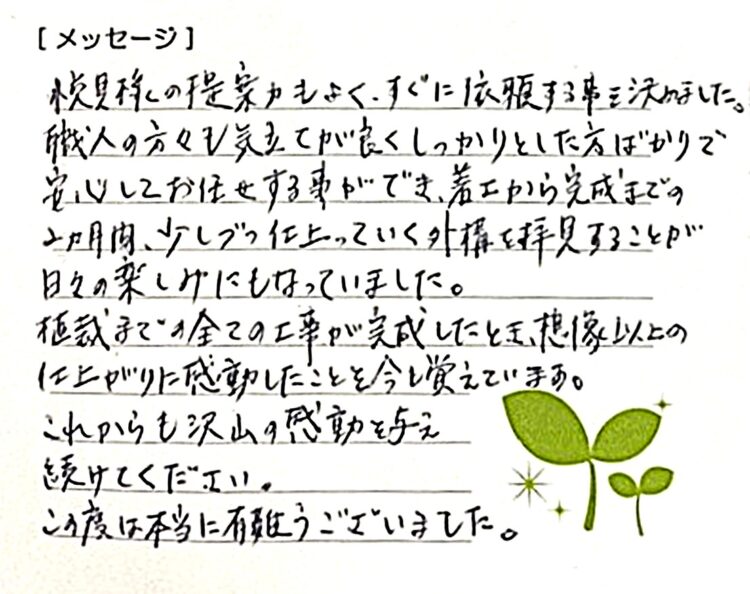 [メッセージ]
悦見様の提案力もよく、すぐに依頼する事を決めました。
職人の方々も気立てが良くしっかりとした方ばかりで
安心してお任せする事ができ、着工から完成までの
2ヵ月間、少しづつ仕上っていく外構を拝見することが
日々の楽しみにもなっていました。
植栽までの全ての工事が完成したとき、想像以上の
仕上がりに感動したことを今も覚えています。
これからも沢山の感動を与え
続けてください。
この度は本当に有難うございました。